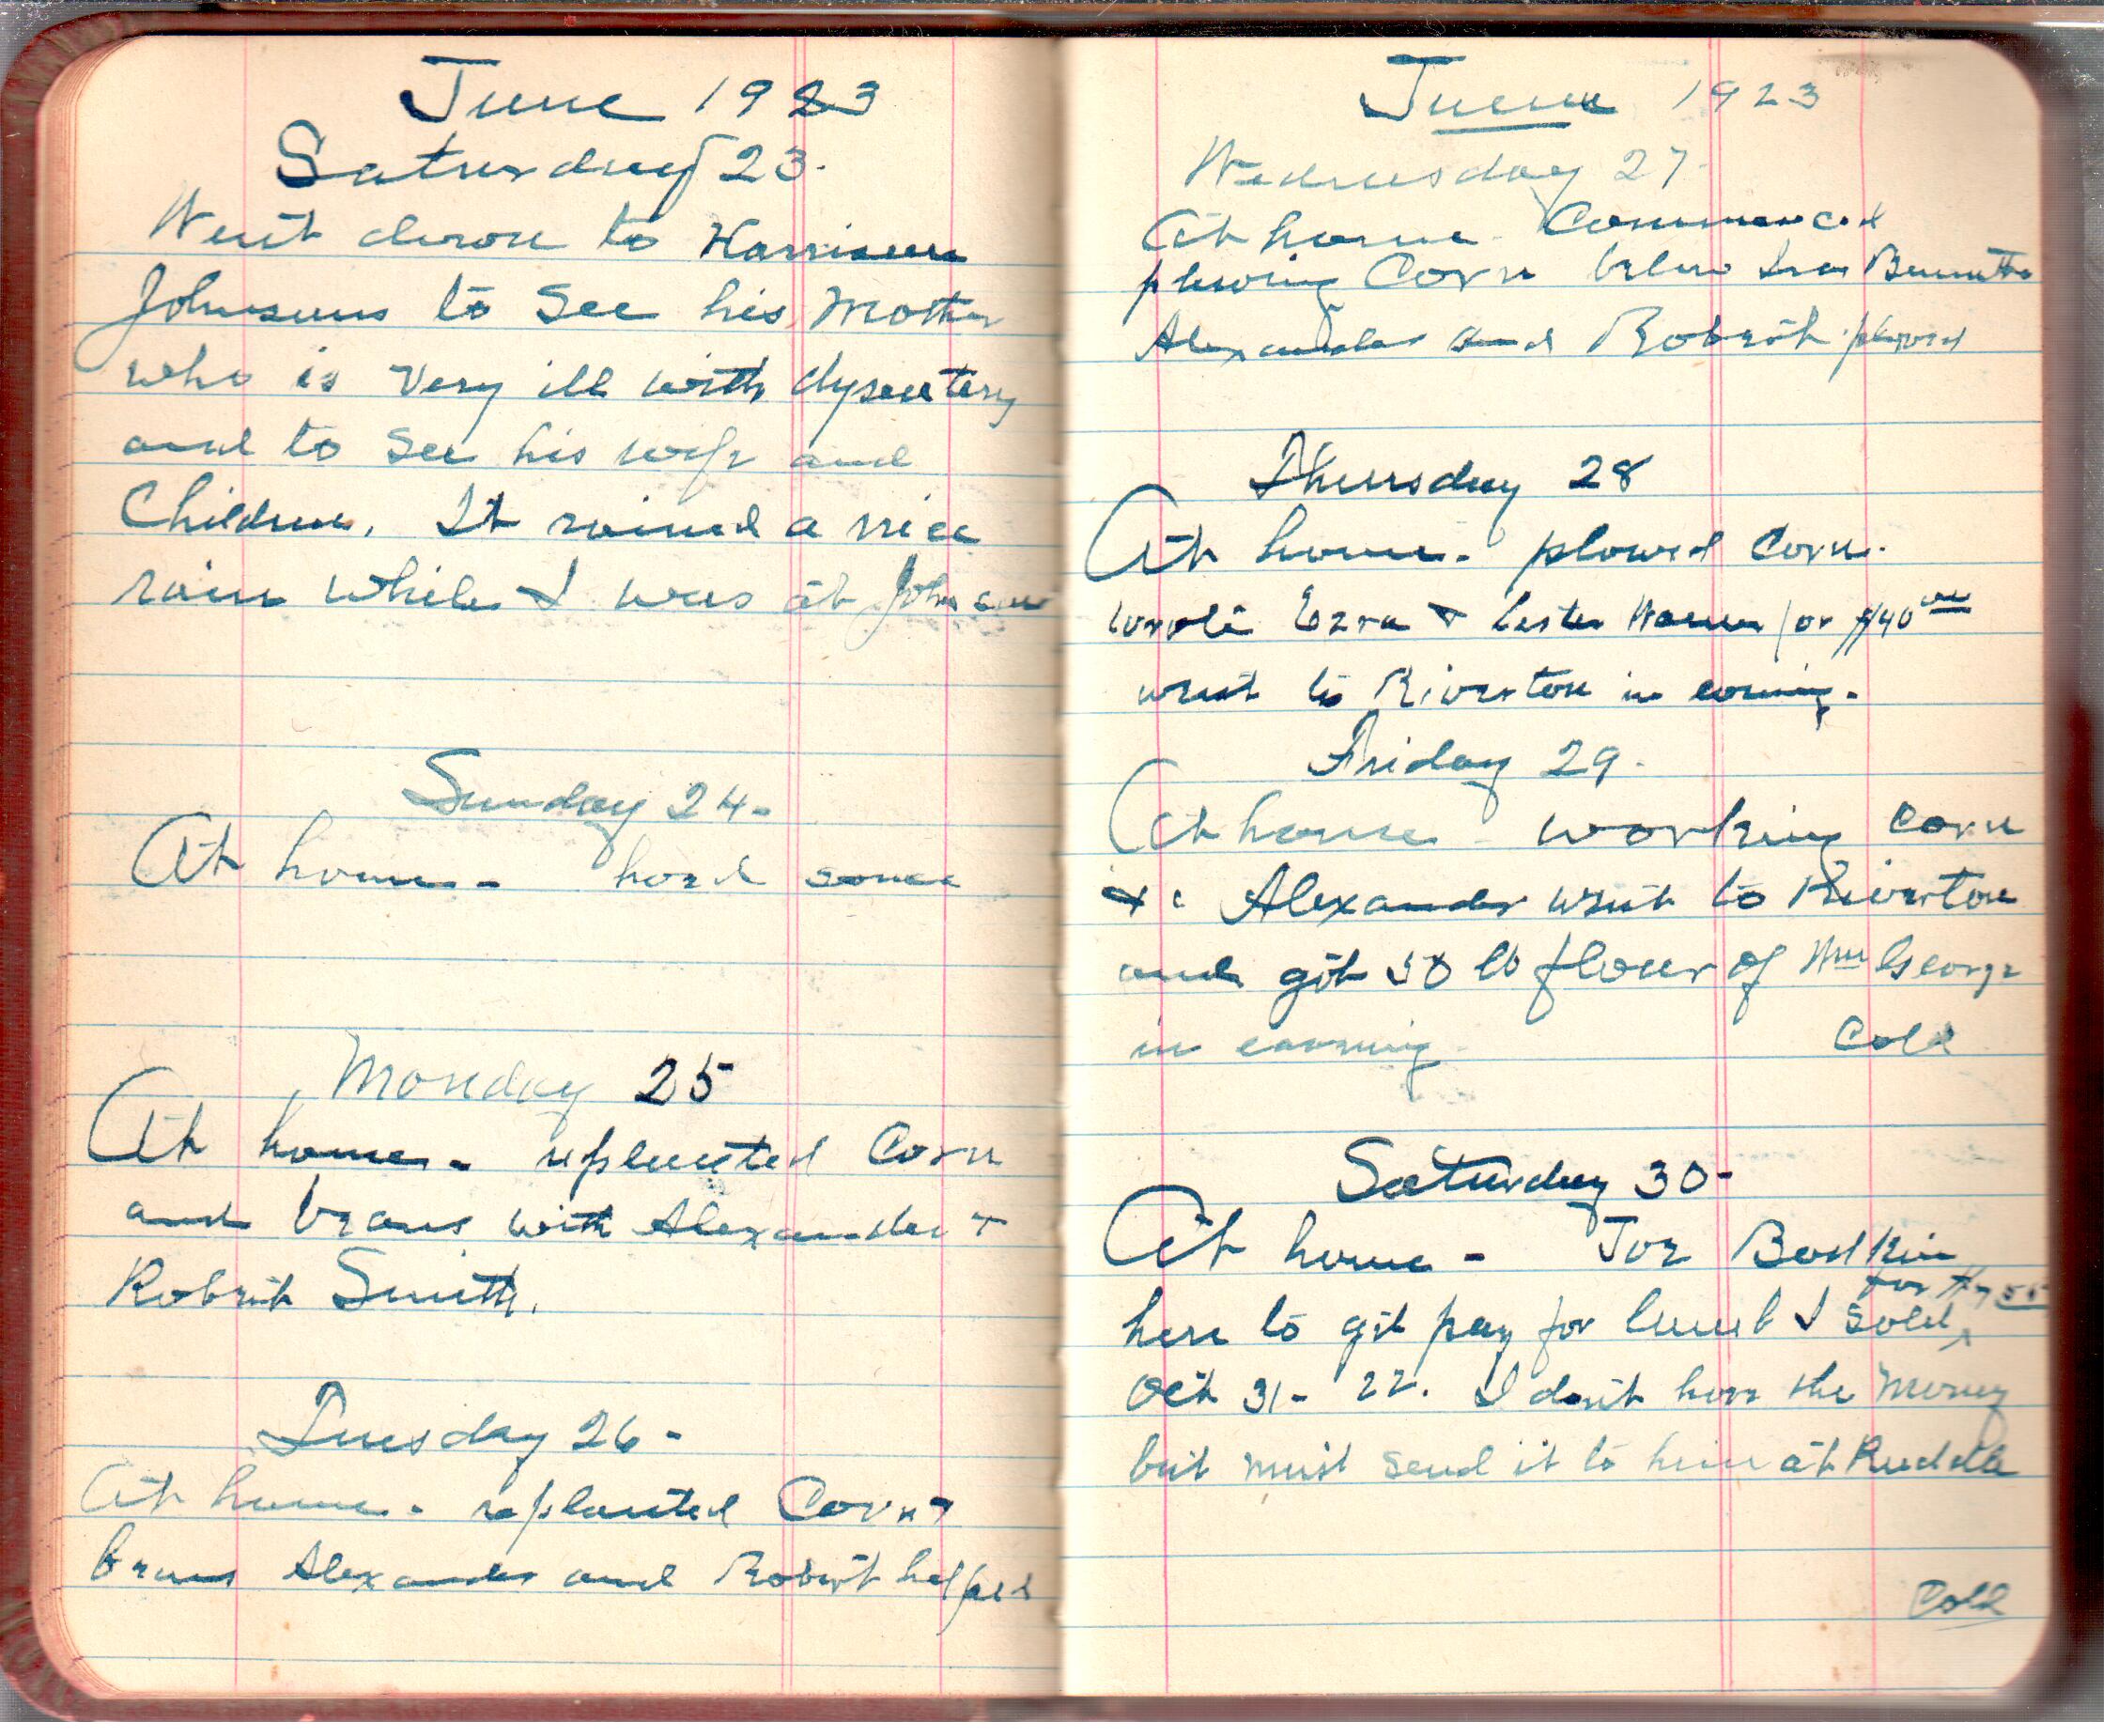 June 1923
Saturday 23.
Went down to Harrison
Johnsons to See his Mother
who is Very ill with dysentery
and to See his wife and
Children. It rained a nice
rain while I was at Johnsons
Sunday 24-
At home- some
Monday 25
At home- replanted Corn
and beans with Alexander +
Robert Smith.
Tuesday 26-
At home- replanted Corn +
beans Alexander and Robert helped
June 1923
Wednesday 27-
At home- Commenced
plowing Corn below Bennetts
Alexander and Robert plowed
Thursday 28
At home- plowed Corn.
wrote Ezra + Lester for $40
went to Riverton in evening-
Friday 29-
At home- working corn
+c Alexander went to Riverton
and got 50 lb flour of George
in evening. Cold
Saturday 30-
At home- Joe Bodkin
for $7
here to git pay for lamb I sold
Oct 31- 22. I don't have the Money
but must send it to him at Ruddle
Cold